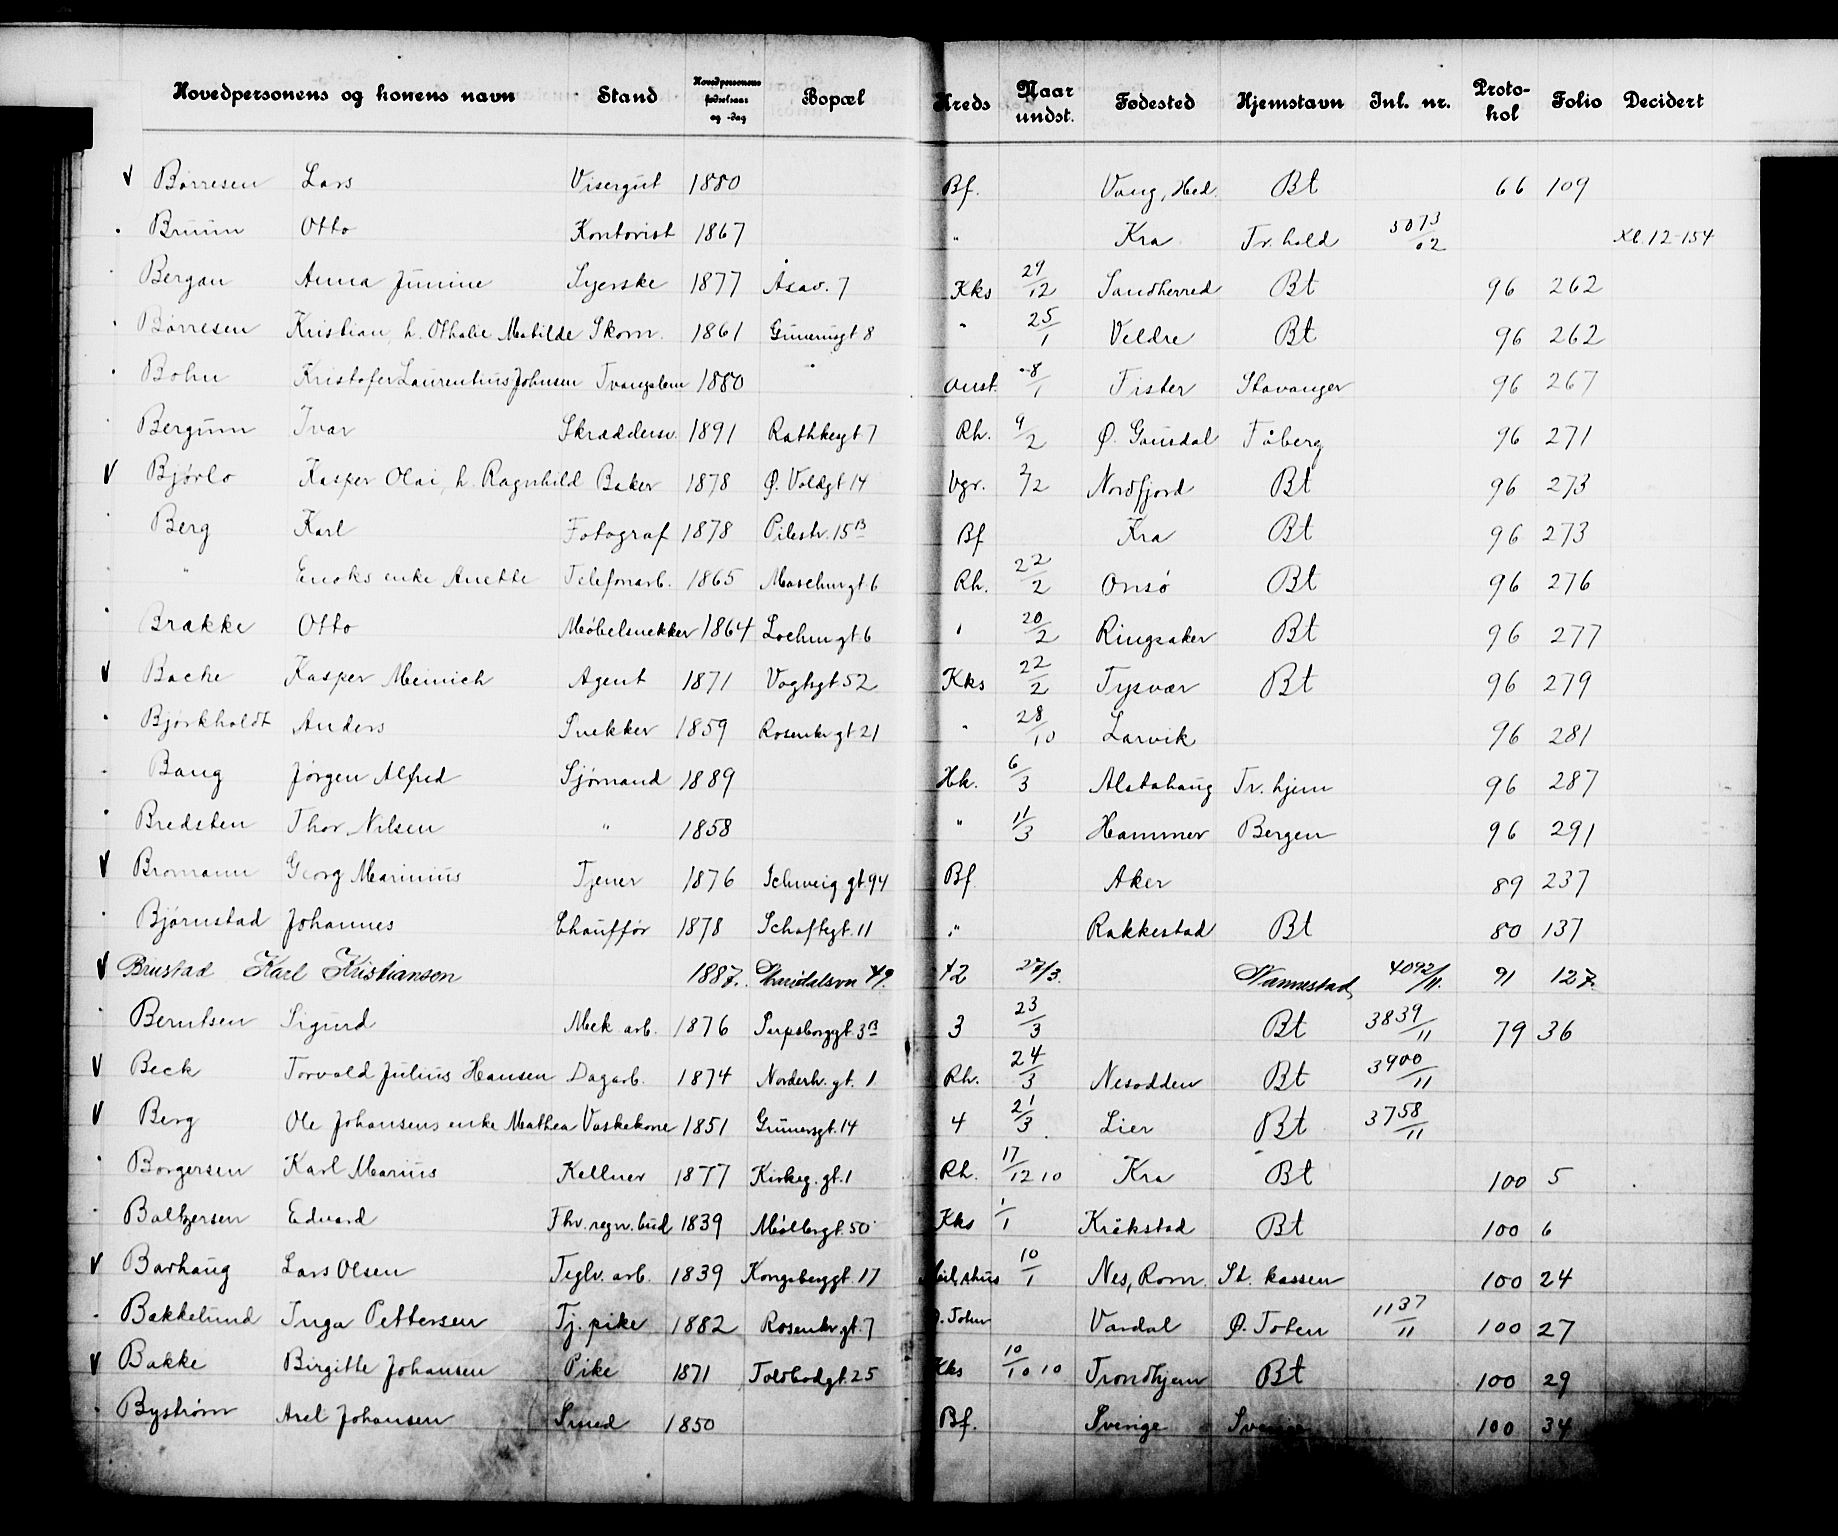 Hovedpersonens og konens navn Stand Hovedpersonens fødselsaar og -dag Bopæl Kreds Naar undst. Fødested Hjemstavn Inl. nr. Protokol Folio Decidert
✓ Børresen Lars Visergut 1880 Bf. Vang, Hed. Bt 66 109
Bruun Otto Kontorist 1867 " Kra Tr.hold 5073/02 Kl. 12-154
Bergan Anna Jumine Syerske 1877 Åsav. 7 Kks 29/12 Sandherred Bt 96 262
Børresen Kristian, h. Othalie Matilde Skom. 1861 Grünersgt 8 " 25/1 Veldre Bt 96 262
Bohn Kristofer Laurentius Johnsen Tvangslem 1880 " anst. 8/1 Fister Stavanger 96 267
Bergum Ivar Skræddersv. 1891 Rathkesgt 7 Rh. 9/2 Ø. Gausdal Fåberg 96 271
✓ Bjørlo Kasper Olai, h. Ragnhild Baker 1878 Ø. Voldgt 14 Vgr. 2/2 Nordfjord Bt 96 273
Berg Karl Fotograf 1878 Pilestr. 15B Bf Kra Bt 96 273
" Enoks enke Anette Telefonarb. 1865 Maschusgt 6 Rh. 22/2 Onsø Bt 96 276
Brække Otto Møbelsnekker 1864 Lochmgt. 6 " 20/2 Ringsaker Bt 96 277
✓ Bache Kasper Meinich Agent 1871 Vogtsgt 52 Kks 22/2 Tysvær Bt 96 279
Bjørkholdt Anders Snekker 1859 Rosenkr gt 21 " 28/10 Larvik 96 281
Bang Jørgen Alfred Sjømand 1889 Hk. 6/3 Alstahaug Tr. hjem 96 287
Bredsten Thor Nilsen " 1858 " 11/3 Hammer Bergen 96 291
✓ Bromann Georg Marinius Tjener 1876 Schweig gt. 94 Bf Aker 89 237
Bjørnstad Johannes Chauffør 1878 Schaftsgt. 11 " Rakkestad Bt 80 137
✓ Brustad Karl Kristianson 1887. 49. 42 27/3. 4092/11. 91 127.
Berntsen Sigurd Mek arb. 1876 Sarpsborggt. 3B 3 23/3 Bt 3839/11 79 36
✓ Beck Torvald Julius Hansen Dagarb. 1874 Norderh. gt. 1 Rh. 24/3 Nesodden Bt 3900/11
✓ Berg Ole Johansens enke Mathea Vaskekone 1851 Grünersgt. 14 4 21/3. Lier Bt 3758/11
Borgersen Karl Marius Kellner 1877 Kirkeg. gt. 1 Rh. 17/12 10 Kra Bt 100 5
Baltzersen Edvard Fhv. regn. bud 1839 Møllergt. 50 Kks 1/1 Kråkstad Bt 100 6
✓ Barhaug Lars Olsen Teglv. arb. 1839 Kongsberggt. 17 10/1 Nes, Rom. St. kassen 100 24
Bakkelund Inga Pettersen Tj. pike 1882 Rosenkr gt. 7 Ø. Toten Vardal Ø. Toten 1137/11 100 27
✓ Bakke Birgitte Johansen Pike 1871 Toldbodgt. 25 Kks 10/10 10 Trondhjem Bt 100 29
Bystrøm Axel Johansen Smed 1850 Bf. Sverige Sverige 100 34